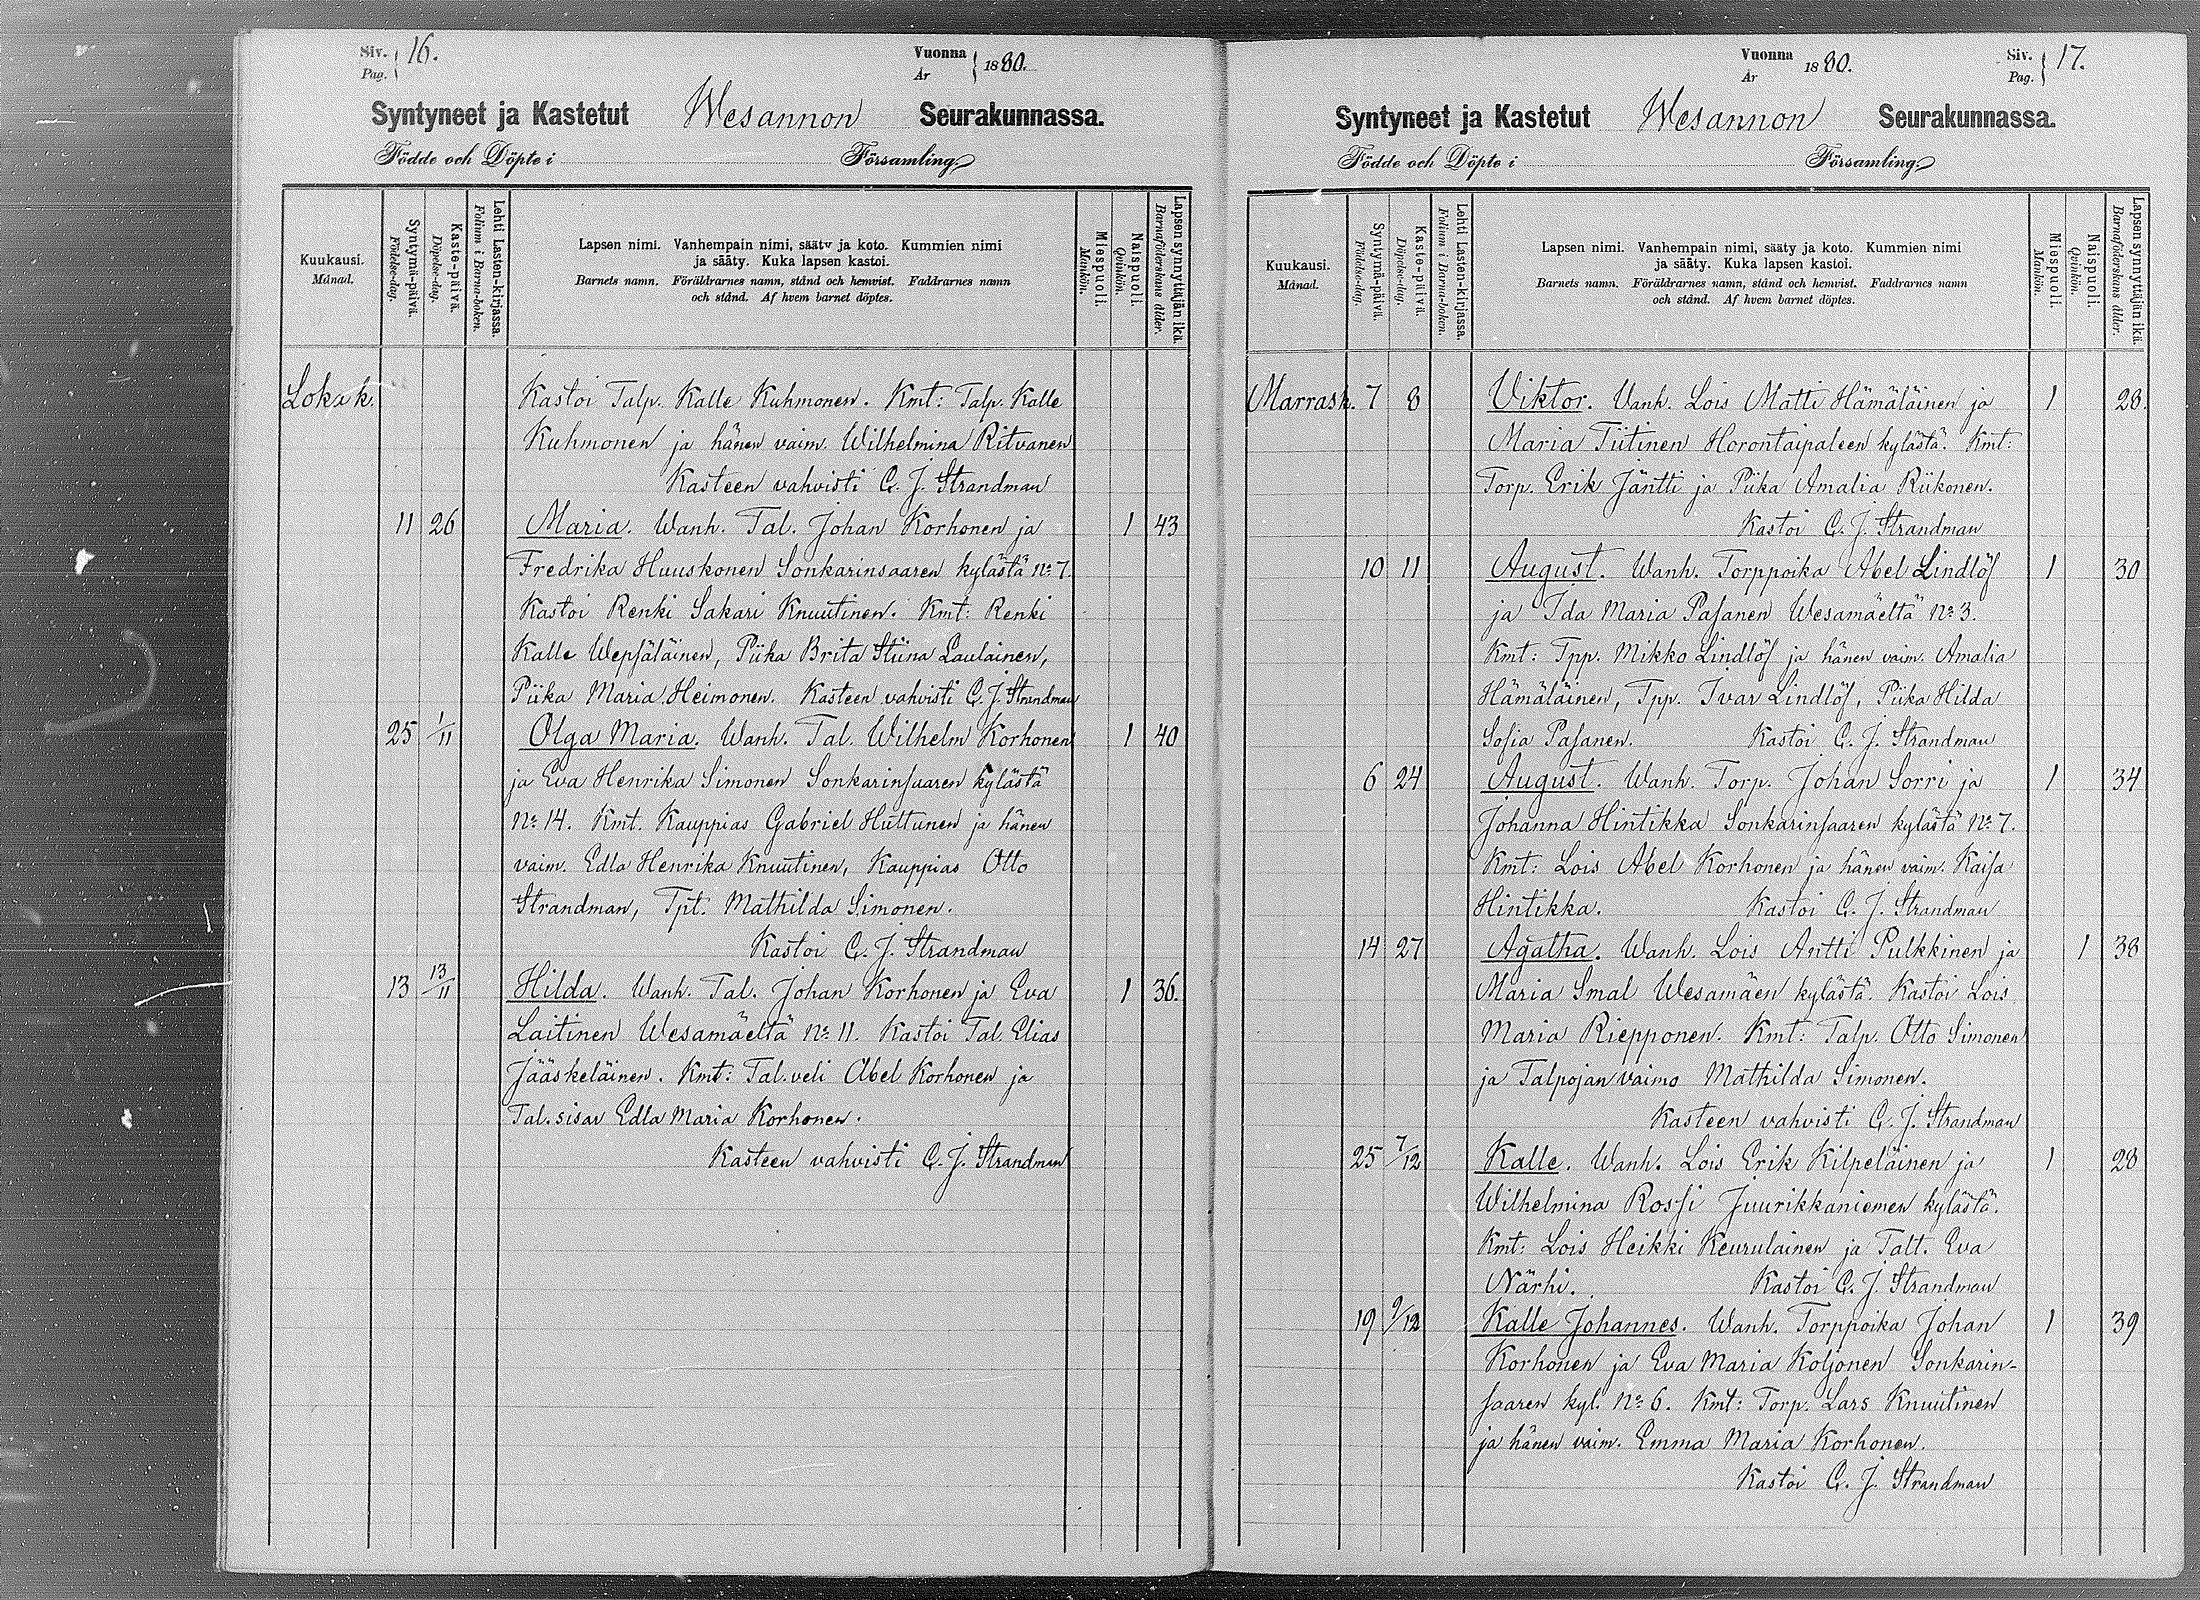 Siv. Pag. 16.
Vuonna År 1880.
Syntyneet ja Kastetut Wesannon Seurakunnassa.
Födde och Döpte i Församling.
Kuukausi. Månad.
Syntymä-päivä. Födelse-dag.
Kaste-päivä. Döpelse-dag.
Lehti Lasten-kirjassa. Folium i Barna-boken.
Lapsen nimi. Vanhempain nimi, sääty ja koto. Kummien nimi
ja sääty. Kuka lapsen kastoi.
Barnets namn. Föräldrarnes namn, stånd och hemvist. Faddrarnes namn
och stånd. Af hvem barnet döptes.
Miespuoli. Mankön.
Naispuoli. Qvinkön.
Lapsen synnyttäjän ikä. Barnaföderskans ålder.
Lokak. Kastoi Talp. Kalle Kuhmonen. Kmt: Talp. Kalle
Kuhmonen ja hänen vaim. Wilhelmina Ritvanen
Kasteen vahvisti C. J. Strandman
11 26 Maria. Wanh. Tal. Johan Korhonen ja 1 43
Fredrika Huuskonen Sonkarinsaaren kylästä No 7.
Kastoi Renki Sakari Knuutinen. Kmt: Renki
Kalle Wepsäläinen, Piika Brita Stiina Laulainen,
Piika Maria Heimonen. Kasteen vahvisti C. J. Strandman
25 1/11 Olga Maria. Wanh. Tal. Wilhelm Korhonen 1 40
ja Eva Henrika Simonen Sonkarinsaaren kylästä
No 14. Kmt. Kauppias Gabriel Huttunen ja hänen
vaim. Edla Henrika Knuutinen, Kauppias Otto
Strandman, Tpt. Mathilda Simonen.
Kastoi C. J. Strandman
13 13/11 Hilda. Wanh. Tal. Johan Korhonen ja Eva 1 36.
Laitinen Wesamäeltä No 11. Kastoi Tal. Elias
Jääskeläinen. Kmt: Tal. veli Abel Korhonen ja
Tal. sisar Edla Maria Korhonen.
Kasteen vahvisti C. J. Strandman
Vuonna År 1880.
Siv. Pag. 17.
Syntyneet ja Kastetut Wesannon Seurakunnassa.
Födde och Döpte i Församling.
Kuukausi. Månad.
Syntymä-päivä. Födelse-dag.
Kaste-päivä. Döpelse-dag.
Lehti Lasten-kirjassa. Folium i Barna-boken.
Lapsen nimi. Vanhempain nimi, sääty ja koto. Kummien nimi
ja sääty. Kuka lapsen kastoi.
Barnets namn. Föräldrarnes namn, stånd och hemvist. Faddrarnes namn
och stånd. Af hvem barnet döptes.
Miespuoli. Mankön.
Naispuoli. Qvinkön.
Lapsen synnyttäjän ikä. Barnaföderskans ålder.
Marrask. 7 8 Viktor. Vanh. Lois Matti Hämäläinen ja 1 28.
Maria Tiitinen Horontaipaleen kylästä. Kmt:
Torp. Erik Jäntti ja Piika Amalia Riikonen.
Kastoi C. J. Strandman
10 11 August. Wanh. Torppoika Abel Lindlöf 1 30
ja Ida Maria Pasanen Wesamäeltä No 3.
Kmt: Tpp. Mikko Lindlöf ja hänen vaim. Amalia
Hämäläinen, Tpp. Ivar Lindlöf, Piika Hilda
Sofia Pasanen. Kastoi C. J. Strandman
6 24 August. Wanh. Torp. Johan Sorri ja 1 34
Johanna Hintikka Sonkarinsaaren kylästä No 7.
Kmt: Lois Abel Korhonen ja hänen vaim. Kaisa
Hintikka. Kastoi C. J. Strandman
14 27 Agatha. Wanh. Lois Antti Pulkkinen ja 1 38
Maria Smal Wesamäen kylästä. Kastoi Lois
Maria Riepponen. Kmt: Talp. Otto Simonen
ja Talpojan vaimo Mathilda Simonen.
Kasteen vahvisti C. J. Strandman
25 7/12 Kalle. Wanh. Lois Erik Kilpeläinen ja 1 28
Wilhelmina Rossi Juurikkaniemen kylästä.
Kmt: Lois Heikki Keurulainen ja Talt. Eva
Närhi. Kastoi C. J. Strandman
19 9/12 Kalle Johannes. Wanh. Torppoika Johan 1 39
Korhonen ja Eva Maria Koljonen Sonkarin-
saaren kyl. No 6. Kmt: Torp. Lars Knuutinen
ja hänen vaim. Emma Maria Korhonen.
Kastoi C. J. Strandman